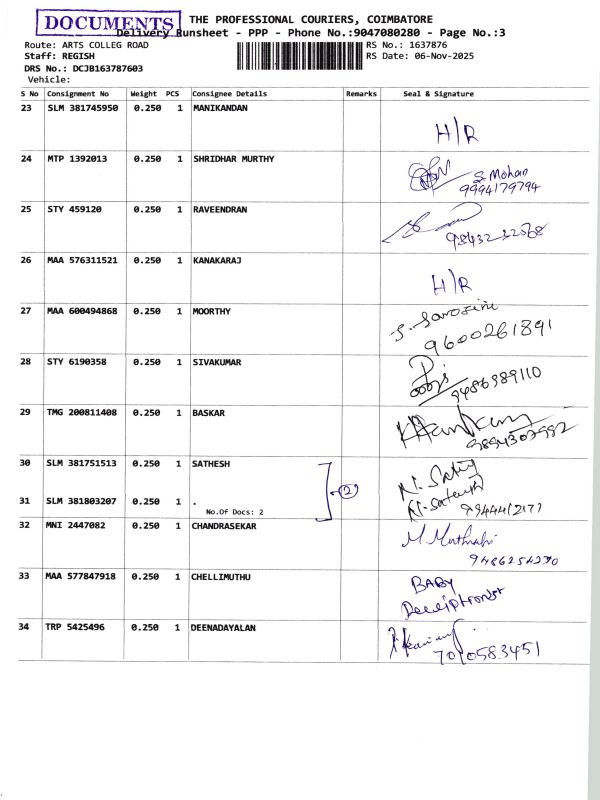 DOCUMENTS
THE PROFESSIONAL COURIERS, COIMBATORE
Delivery Runsheet - PPP - Phone No.:9047080280 - Page No.:3
Route: ARTS COLLEG ROAD RS No.: 1637876
Staff: REGISH RS Date: 06-Nov-2025
DRS No.: DCJB163787603
Vehicle:
S No Consignment No Weight PCS Consignee Details Remarks Seal & Signature
23 SLM 381745950 0.250 1 MANIKANDAN
H/R
24 MTP 1392013 0.250 1 SHRIDHAR MURTHY
S. Mohan
9994179794
25 STY 459120 0.250 1 RAVEENDRAN
26 MAA 576311521 0.250 1 KANAKARAJ
H/R
27 MAA 600494868 0.250 1 MOORTHY
S. Sarojini
9600261891
28 STY 6190358 0.250 1 SIVAKUMAR
9486989110
29 TMG 200811408 0.250 1 BASKAR
30 SLM 381751513 0.250 1 SATHESH
(2)
31 SLM 381803207 0.250 1 .
No.Of Docs: 2
N. Satesh
9444412177
32 MNI 2447082 0.250 1 CHANDRASEKAR
9486254230
33 MAA 577847918 0.250 1 CHELLIMUTHU
BABY
34 TRP 5425496 0.250 1 DEENADAYALAN
7010583451